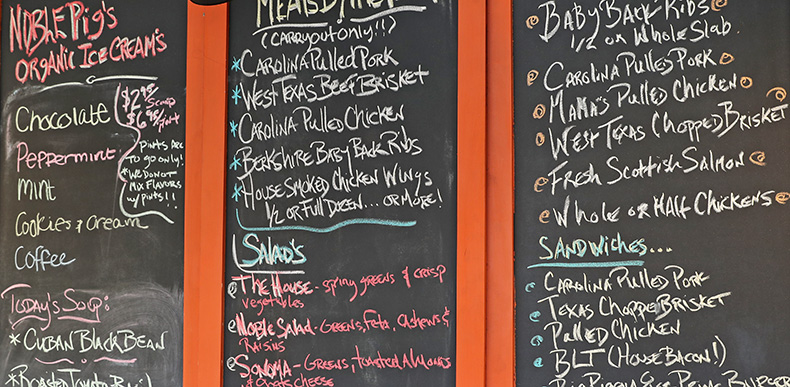 NOBLE PIG'S
ORGANIC ICE CREAM'S
Chocolate
$2.95/Scoop
$6.95/Pint
Peppermint
MINT
Cookies & Cream
Coffee
PINTS ARE
TO GO ONLY!
*WE DO NOT
MIX FLAVORS
W/PINTS!!
TODAY'S SOUP:
*CUBAN BLACK BEAN
(CARRYOUT ONLY!!)
*CAROLINA PULLED PORK
*WEST TEXAS BEEF BRISKET
*CAROLINA PULLED CHICKEN
*BERKSHIRE BABY BACK RIBS
*HOUSE SMOKED CHICKEN WINGS
1/2 OR FULL DOZEN... OR MORE!
SALAD'S
THE HOUSE - spring greens & crisp
vegetables
NOBLE SALAD - GREENS, Feta, CASHEWS &
RAISINS
SONOMA - GREENS, toasted Almonds
& Goats CHEESE
BABY BACK RIBS
1/2 OR WHOLE SLAB
CAROLINA PULLED PORK
MAMA'S PULLED CHICKEN
WEST TEXAS CHOPPED BRISKET
FRESH SCOTTISH SALMON
WHOLE OR HALF CHICKENS
SANDWICHES...
CAROLINA PULLED PORK
TEXAS CHOPPED BRISKET
PULLED CHICKEN
BLT (HOUSE BACON!)